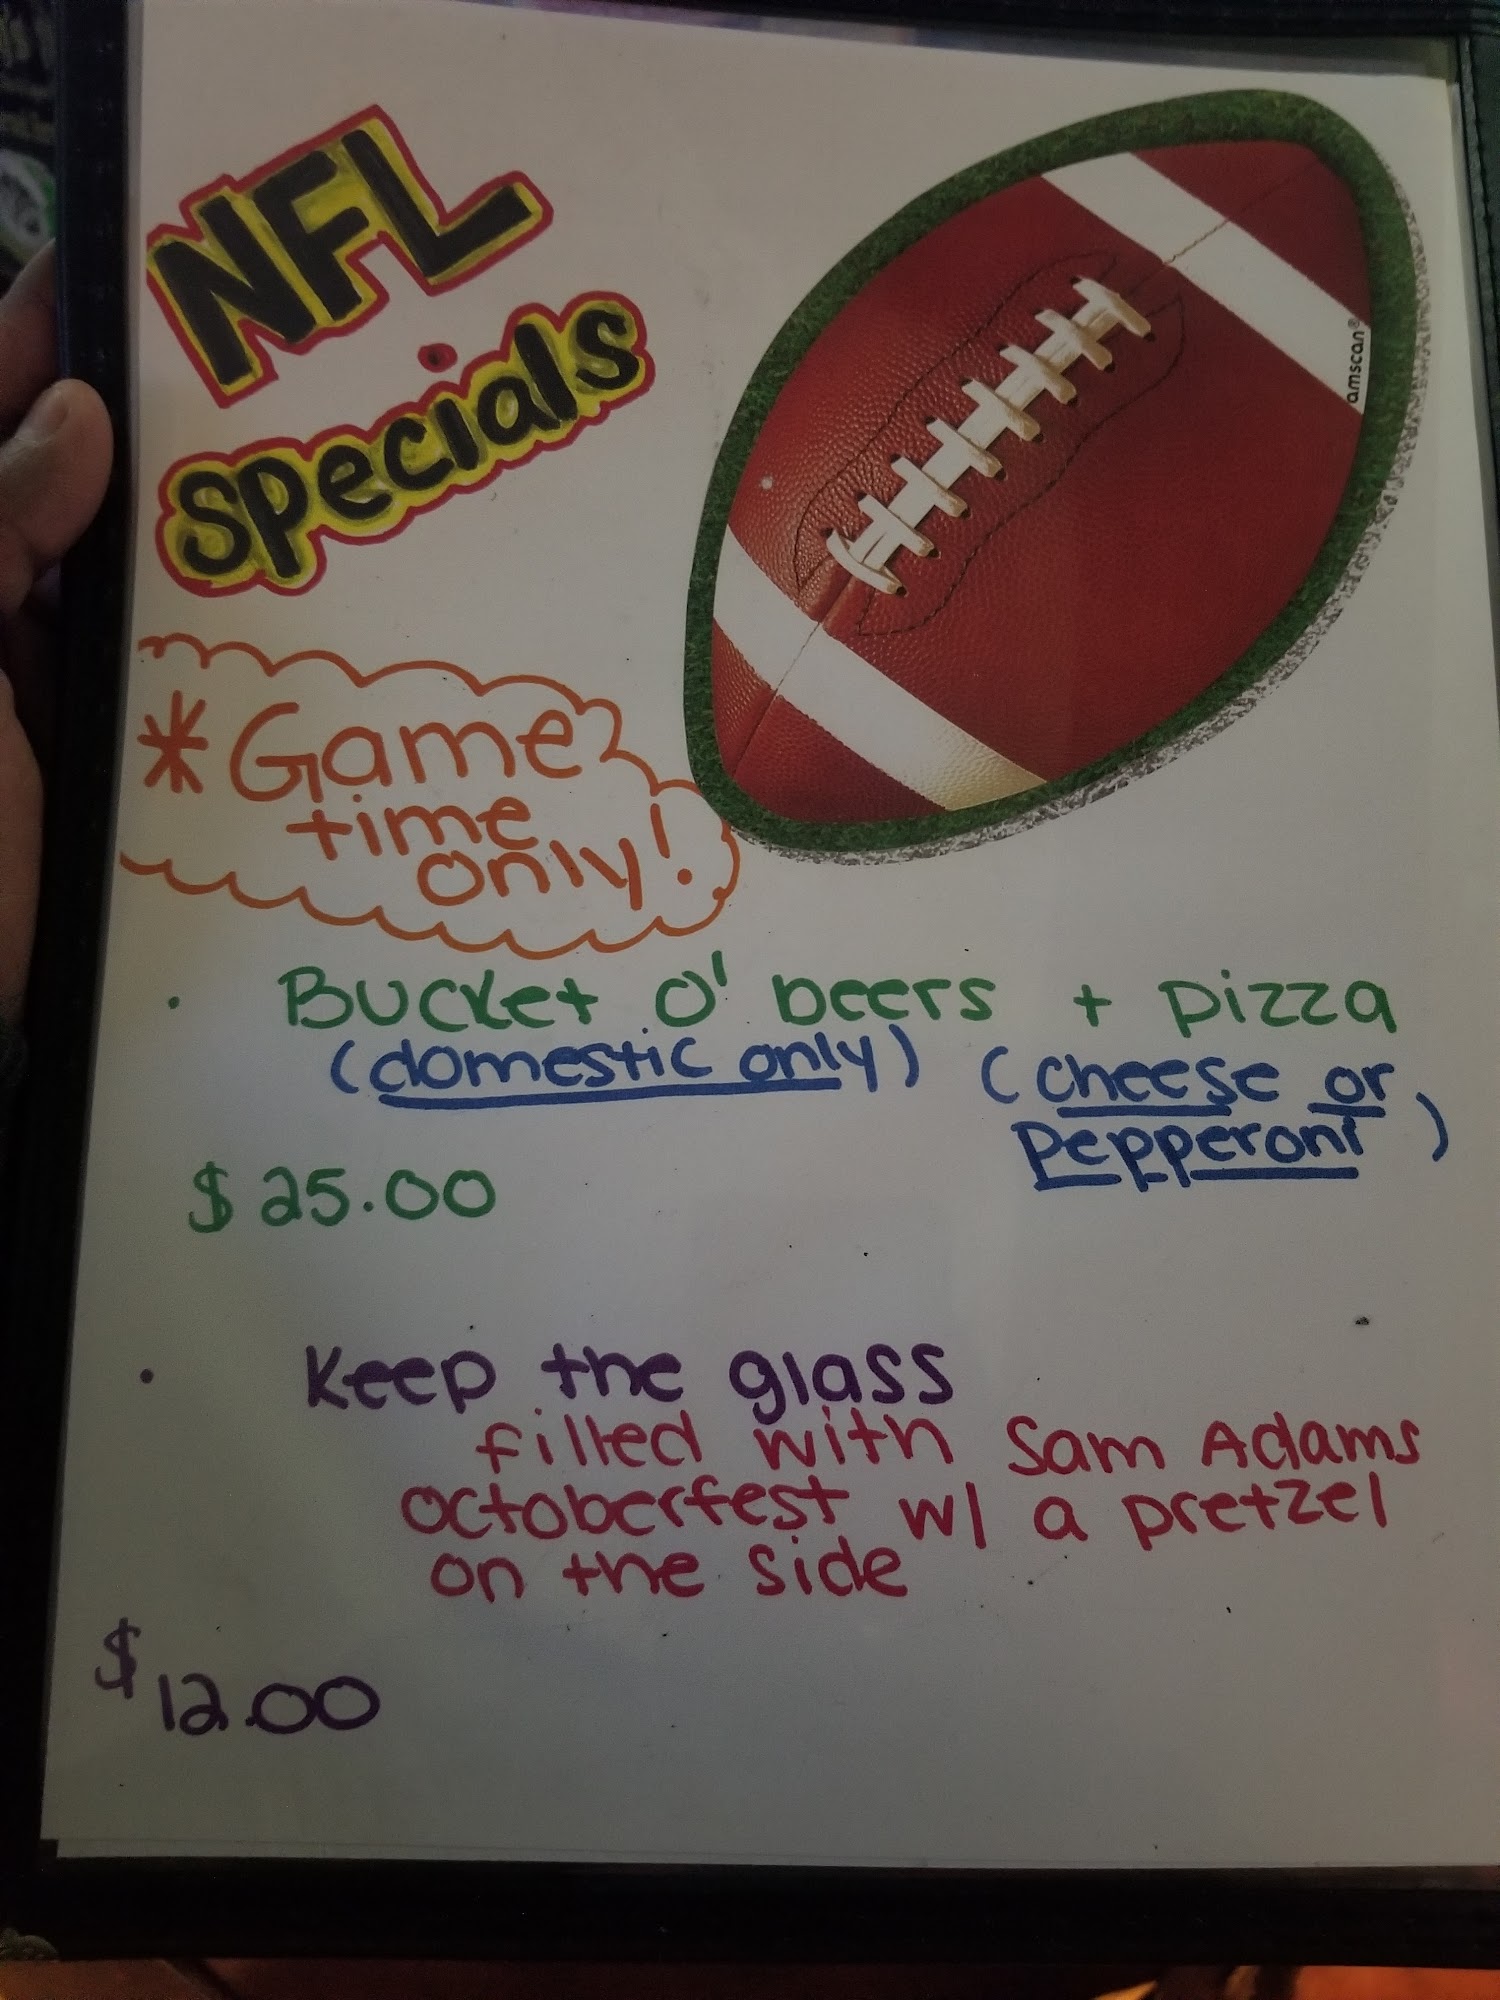 NFL
specials
amscan®
*Game
time
only!
• Bucket O' beers + pizza
(domestic only) (cheese or
pepperoni)
$25.00
• Keep the glass
filled with Sam Adams
octoberfest w/ a pretzel
on the side
$12.00